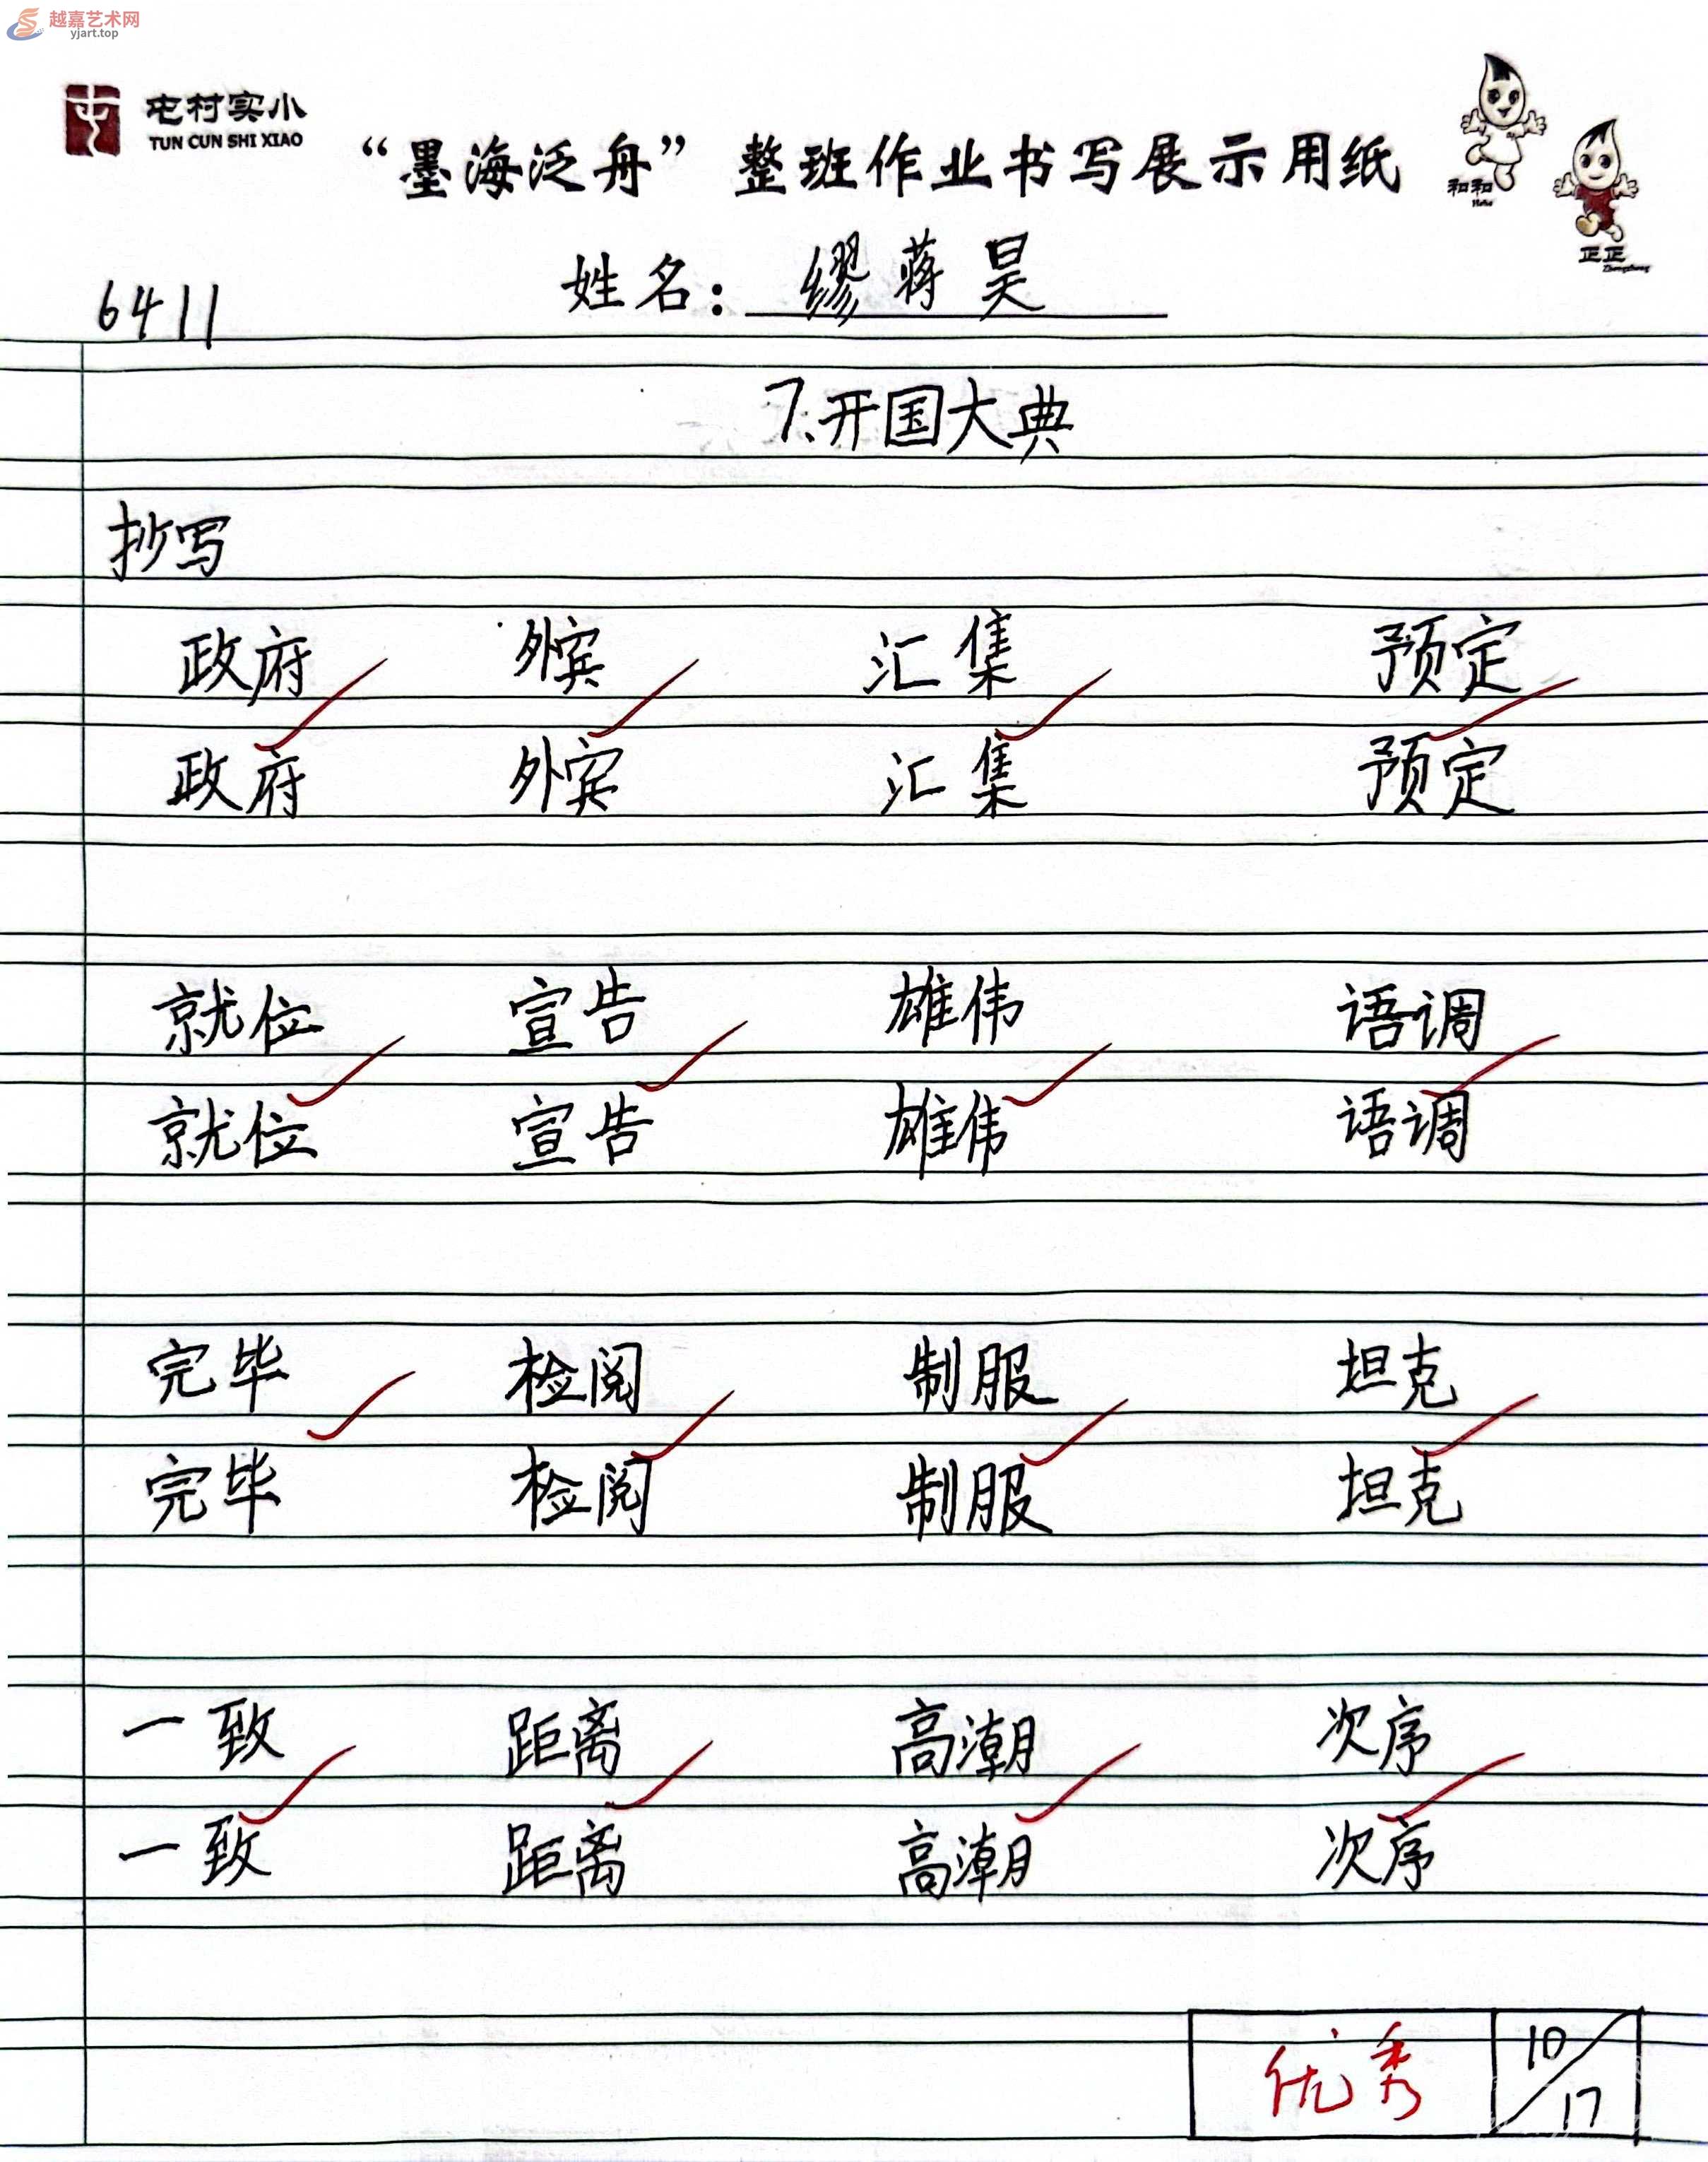 越嘉艺术网
yjart.top
屯村实小
TUN CUN SHI XIAO
“墨海泛舟”整班作业书写展示用纸
和和
Hehe
正正
Zhengzheng
6411 姓名：缪蒋昊
7.开国大典
抄写
政府 外宾 汇集 预定
政府 外宾 汇集 预定
就位 宣告 雄伟 语调
就位 宣告 雄伟 语调
完毕 检阅 制服 坦克
完毕 检阅 制服 坦克
一致 距离 高潮 次序
一致 距离 高潮 次序
优秀 10/17